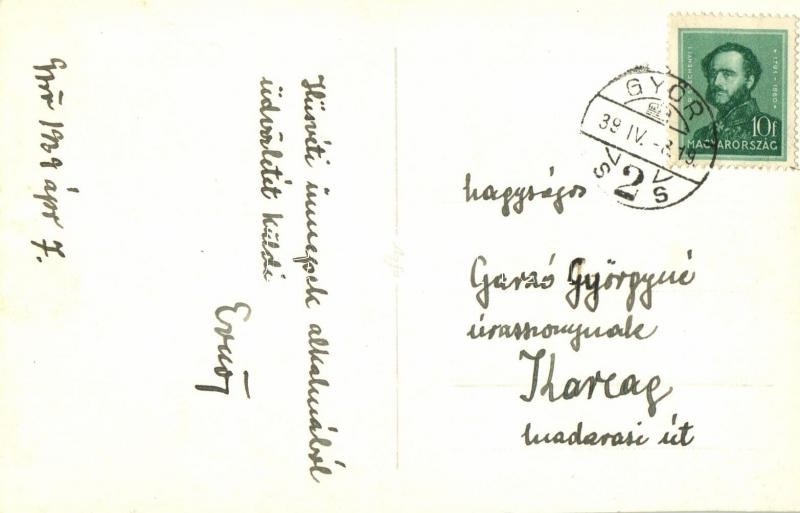 Győr 1939 ápr 7.
Húsvéti ünnepek alkalmából
üdvözletét küldi
Ernő
SZÉCHENYI I.
* 1791 - 1860 *
10f
MAGYARORSZÁG
GYŐR
39 IV.
2
nagyságos
Garzó Györgyné
úrasszonynak
Karcag
madarasi út